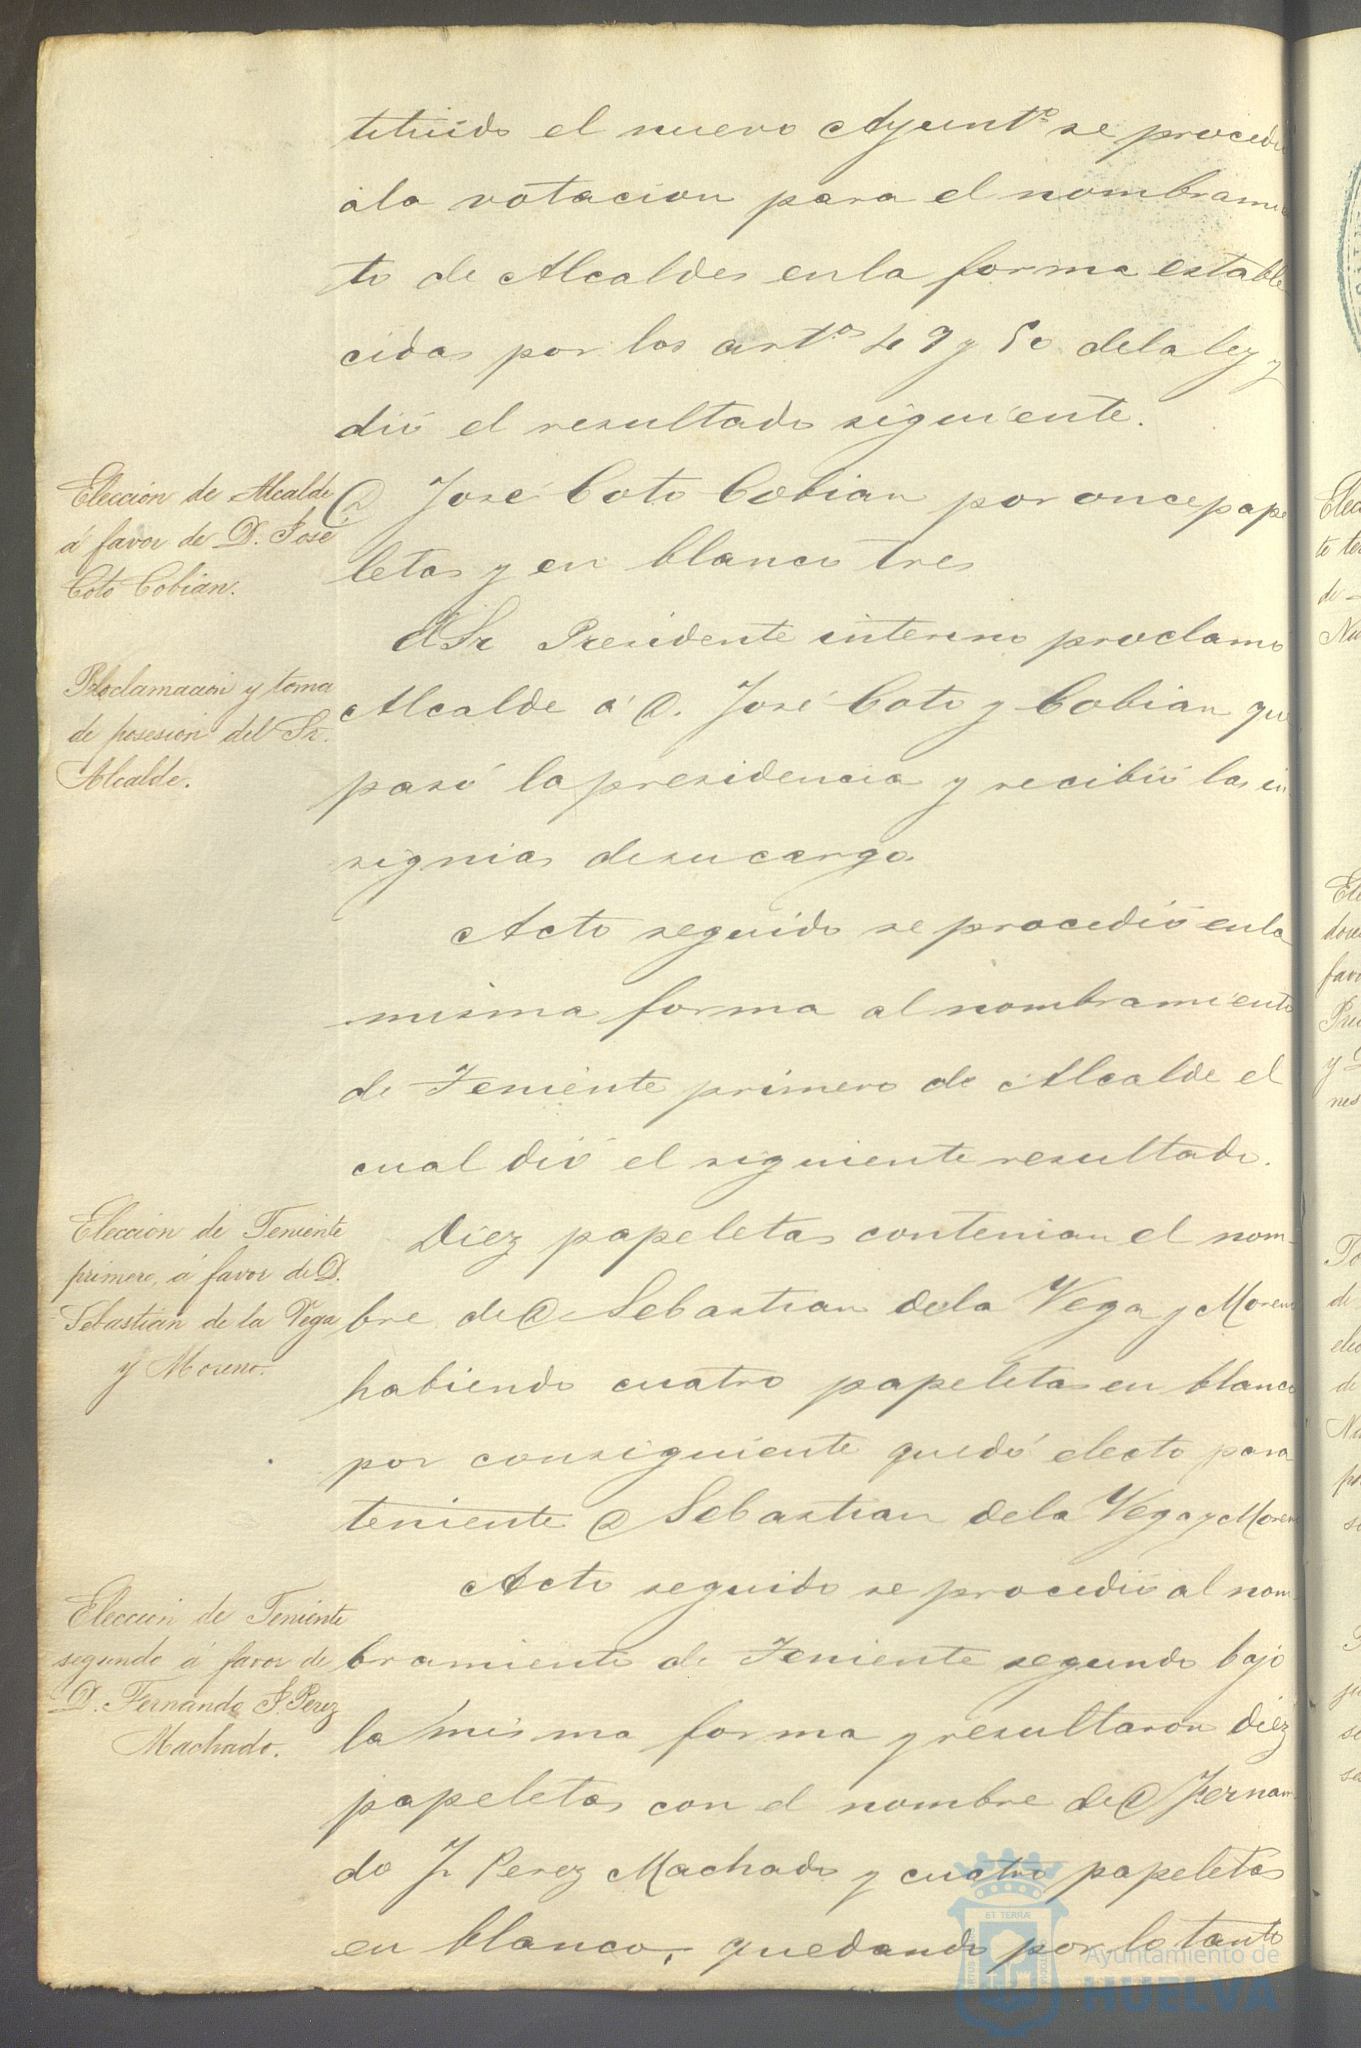 tituido el nuevo Ayuntº se procedi
a la votacion para el nombramie
to de Alcaldes en la forma estable
cidas por los artºs 49 y 50 de la ley y
dió el resultado siguiente.
Elección de Alcalde
á favor de D. José
Coto Cobian.
D. José Coto Cobian por once pape
letas y en blanco tres
El Sr Presidente interino proclamó
Proclamacion y toma
de posesion del Sr.
Alcalde.
Alcalde á D. José Coto y Cobian que
pasó la presidencia y recibió las in
signias de su cargo.
Acto seguido se procedió en la
misma forma al nombramiento
de Teniente primero de Alcalde el
cual dió el siguiente resultado.
Elección de Teniente
primero, á favor de D.
Sebastián de la Vega
y Moreno.
Diez papeletas contenian el nom-
bre de D. Sebastian de la Vega y Moreno
habiendo cuatro papeletas en blanco
por consiguiente quedó electo para
teniente D Sebastian de la Vega y Moreno
Acto seguido se procedió al nom
Eleccion de Teniente
segundo á favor de
D. Fernando J. Perez
Machado.
bramiento de Teniente segundo bajo
la misma forma y resultaron diez
papeletas con el nombre de D Fernan
do J. Perez Machado y cuatro papeletas
en blanco, quedando por lo tanto
Ayuntamiento de
HUELVA